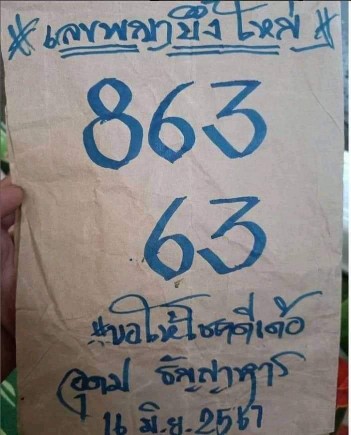 #เลขพญาบึ้งใหญ่#
863
63
#ขอให้โชคดีเด้อ
อุดม ธัญญาหาร
16 มิ.ย. 2567